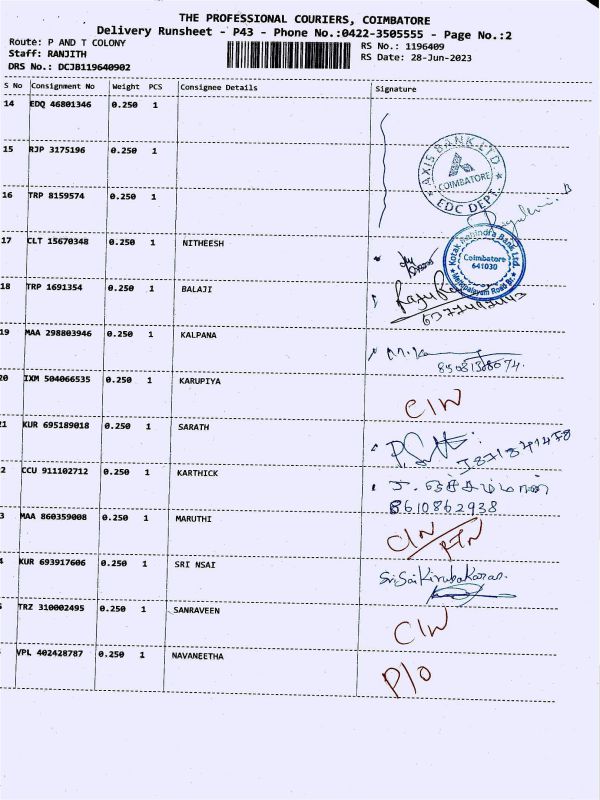 THE PROFESSIONAL COURIERS, COIMBATORE
Delivery Runsheet - P43 - Phone No.:0422-3505555 - Page No.:2
Route: P AND T COLONY
RS No.: 1196409
Staff: RANJITH
RS Date: 28-Jun-2023
DRS No.: DCJB119640902
S No Consignment No Weight PCS Consignee Details Signature
14 EDQ 46801346 0.250 1
15 RJP 3175196 0.250 1
AXIS BANK LTD.
COIMBATORE
EDC DEPT.
16 TRP 8159574 0.250 1
17 CLT 15670348 0.250 1 NITHEESH
Kotak Mahindra Bank Ltd.
Coimbatore
641030
18 TRP 1691354 0.250 1 BALAJI
19 MAA 298803946 0.250 1 KALPANA
20 IXM 504066535 0.250 1 KARUPIYA
C/N
21 KUR 695189018 0.250 1 SARATH
2 CCU 911102712 0.250 1 KARTHICK
8610862938
3 MAA 860359008 0.250 1 MARUTHI
C/N
4 KUR 693917606 0.250 1 SRI NSAI
Sri Sai Kirubakaran.
TRZ 310002495 0.250 1 SANRAVEEN
C/N
VPL 402428787 0.250 1 NAVANEETHA
P/O